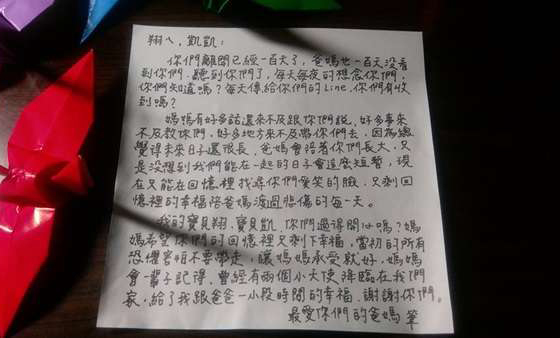 翔ㄟ,凱凱:
你們離開已經一百天了,爸媽也一百天沒看
到你們、聽到你們了,每天每夜的想念你們,
你們知道嗎?每天傳給你們的Line,你們有收
到嗎?
媽媽有好多話還來不及跟你們說,好多事來
不及教你們,好多地方來不及帶你們去,因為總
覺得未來日子還很長,爸媽會陪著你們長大,只
是沒想到我們能在一起的日子會這麼短暫,現
在只能在回憶裡找尋你們愛笑的臉,只剩回
憶裡的幸福陪爸媽渡過悲傷的每一天。
我的寶貝翔、寶貝凱,你們過得開心嗎?媽
媽希望你們的回憶裡只剩下幸福,當初的所有
恐懼害怕不要帶走,讓媽媽承受就好,媽媽
會一輩子記得,曾經有兩個小天使降臨在我們
家,給了我跟爸爸一小段時間的幸福,謝謝你們。
最愛你們的爸媽 筆